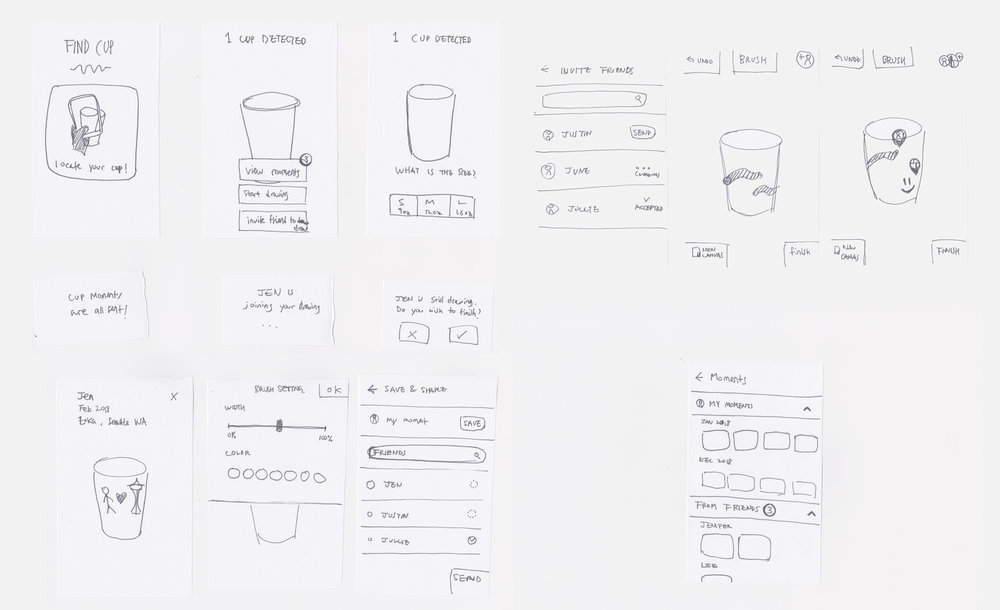 FIND CUP
Locate your cup!
1 CUP DETECTED
3
view moments
Start drawing
invite friend to
1 CUP DETECTED
WHAT IS THE SIZE?
S M L
9oz 12oz 16oz
← INVITE FRIENDS
JUSTIN SEND
JUNE ...
(LOADING)
JULLIE ✓
ACCEPTED
UNDO BRUSH +
NEW
CANVAS
finish
UNDO BRUSH
NEW
CANVAS
FINISH
CUP MOMENTS
are all sent!
JEN IS
joining your drawing
...
JEN is still drawing.
Do you wish to finish?
X ✓
Jen X
Feb 2018
Zoka, Seattle WA
BRUSH SETTING OK
WIDTH
0% 100%
COLOR
← SAVE & SHARE
My moment SAVE
FRIENDS
JEN
JUSTIN
JULLIE
SEND
← Moments
MY MOMENTS
JAN 2018
DEC 2018
FROM FRIENDS 3
JENIFER
LEE